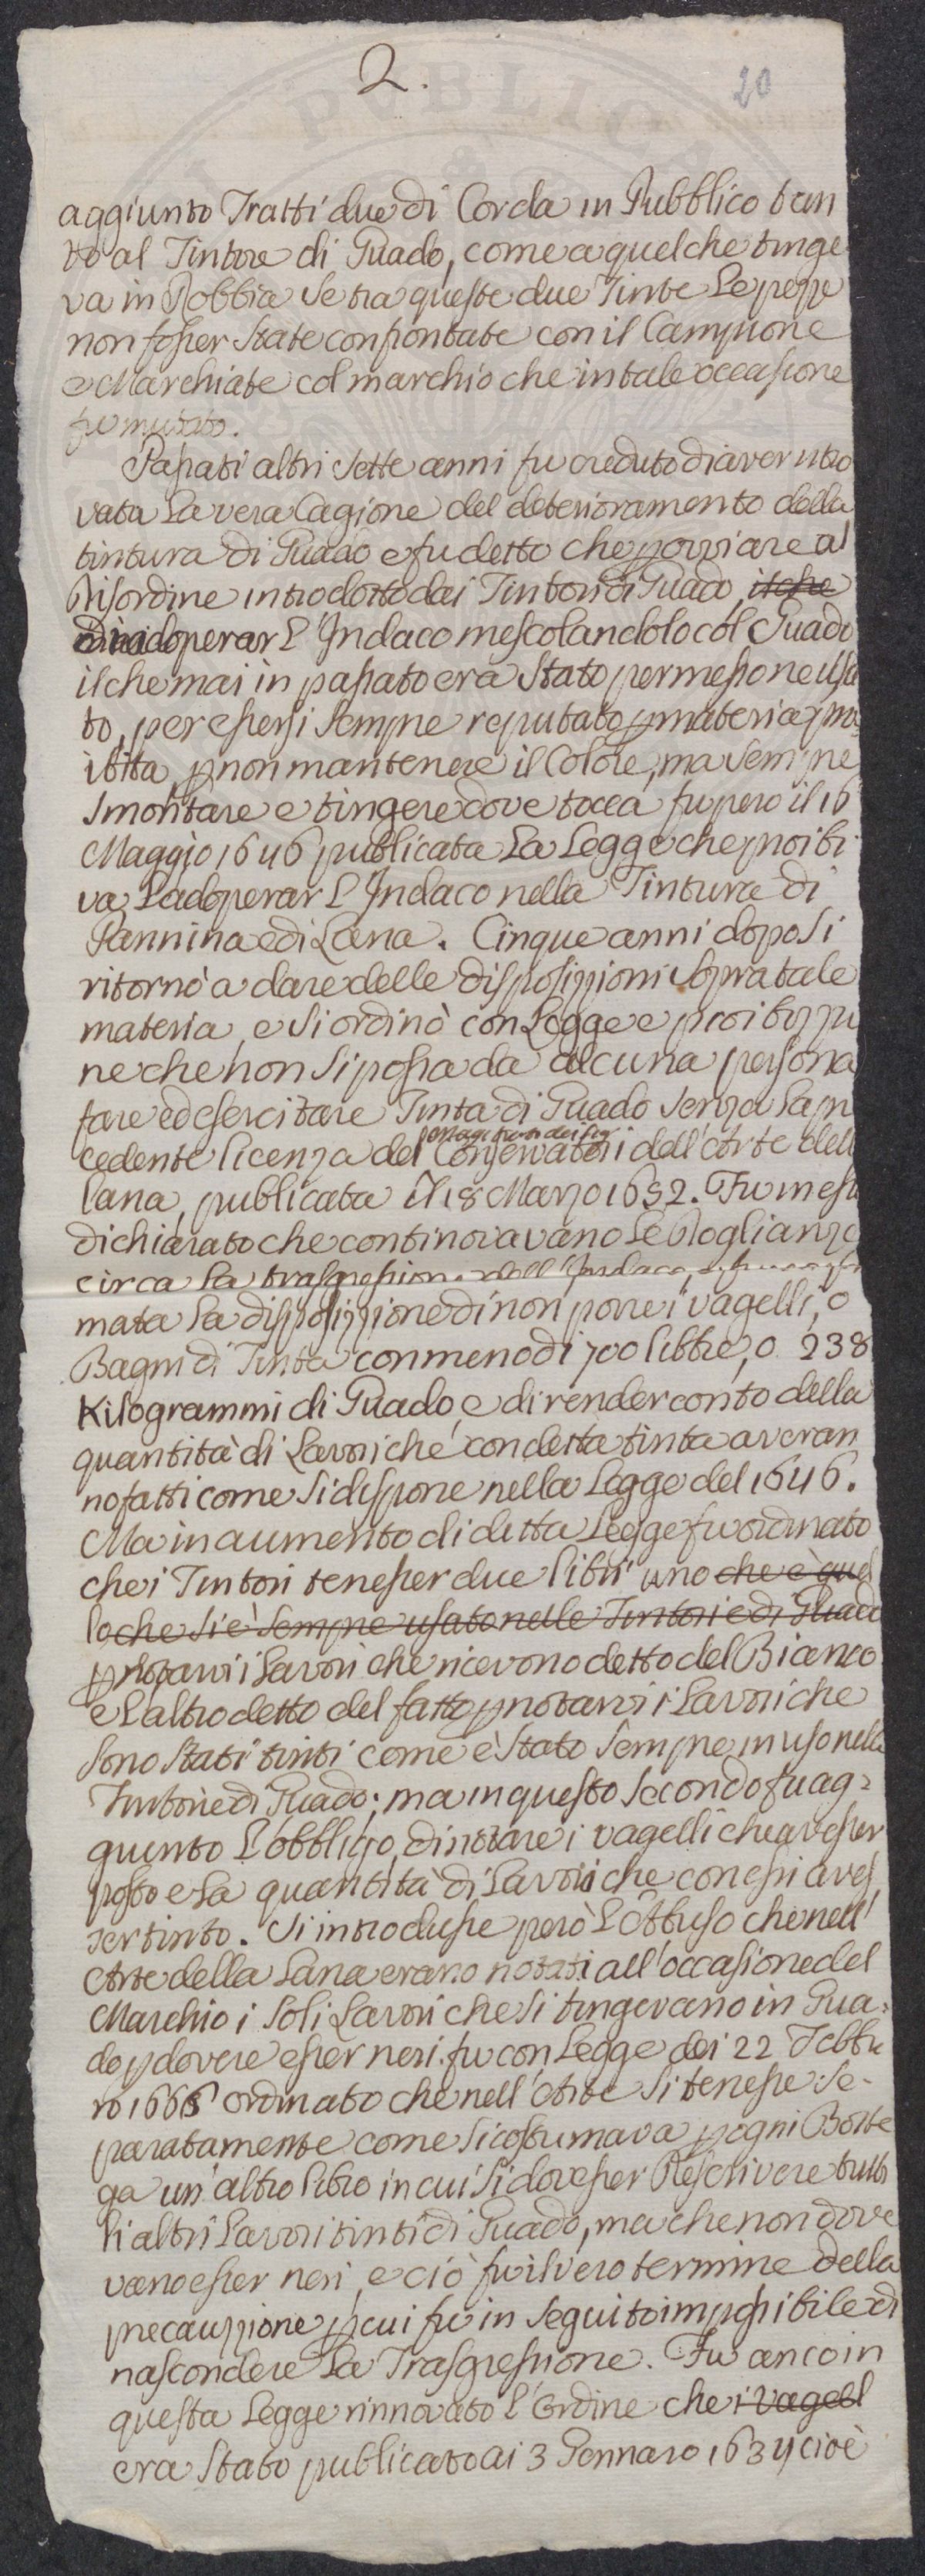 2.
20
aggiunto Tratti due di Corda in Pubblico tan
to al Tintore di Guado, come a quel che tinge
va in Robbia se tra queste due Tinte Le pezze
non fosser State confrontate con il Campione
e Marchiate col marchio che in tale occasione
fu mutato.
Passati altri sette anni fu creduto di aver ritro
vata La vera Cagione del deterioramento della
tintura di Guado e fu detto che
Disordine introdotto dai Tintori di Guado, il che
adoperar L'Indaco mescolandolo col Guado
il che mai in passato era Stato permesso ne usa
to, per essersi Sempre reputato p materia pro
ibita, p non mantenere il Colore, ma Sempre
Smontare e tingere dove tocca, fu pero il 16
Maggio 1646 publicata La Legge che proibi
va L'adoperar L'Indaco nella Tintura di
Pannina e di Lana. Cinque anni dopo Si
ritornò a dare delle disposizzioni Sopra tale
materia, e Si ordinò con Legge e proibizzio
ne che non Si possa da alcuna persona
fare ed esercitare Tinta di Guado Senza La pre
cedente licenza del Conservatori dell'Arte dell
lana, publicata il 18 Marzo 1652. Fu in essa
dichiarato che continovavano Le Doglianze
circa La trasgressione dell'Indaco, e fu
mata La disposizzione di non porre i vagelli, o
Bagni di Tinta con meno di 700 libbre, o 238
Kilogrammi di Guado, e di render conto della
quantità di Lavori che con detta tinta averan
no fatti come Si dispone nella Legge del 1646.
Ma in aumento di detta Legge fu ordinato
che i Tintori tenesser due libri uno che è quel
lo che Si è Sempre usato nelle Tintorie di Guado
p notarvi i Lavori che ricevono detto del Bianco
e L'altro detto del fatto p notarvi i Lavori che
Sono Stati tinti come è Stato Sempre in uso nelle
Tintorie di Guado; ma in questo Secondo fu ag=
giunto L'obbligo di notare i vagelli che avesser
posto e La quantità di Lavori che con essi aves
ser tinto. Si introdusse però L'Abuso che nell'
Arte della Lana erano notati all'occasione del
Marchio i Soli Lavori che Si tingevano in Gua=
do p dovere esser neri. fu con Legge dei 22 Febbra
ro 1666 ordinato che nell'Arte Si tenesse Se-
paratamente come Si costumava p ogni Botte
ga un'altro libro in cui Si dovesser Descrivere tutti
li altri Lavori tinti di Guado, ma che non dove
vano esser neri, e ciò fu il vero termine della
precauzzione p cui fu in Seguito impossibile di
nascondere La Trasgressione. Fu anco in
questa Legge rinnovato L'Ordine che i vagell
era Stato publicato ai 3 Gennaro 1634 cioè